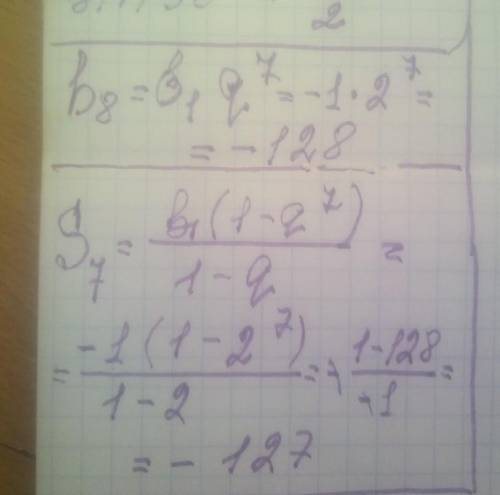 2
b₈ = b₁ q⁷ = -1 · 2⁷ =
= -128
S₇ = b₁(1-q⁷) / 1-q =
= -1(1-2⁷) / 1-2 = - 1-128 / -1 =
= - 127